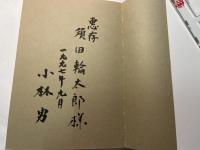 惠存
須田輪太郎様
一九九七年九月
小林勇